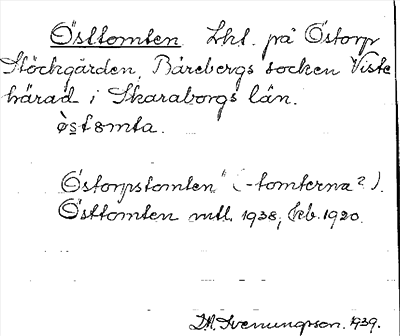 Östtomten Lht. på Östorp
Stöckgården, Bärebergs socken Viste
härad i Skaraborgs län.
ö̀stomta.
Östorpstomten" (-tomterna?).
Östtomten mtl. 1938, Ekb. 1920.
Svenungsson. 1939.